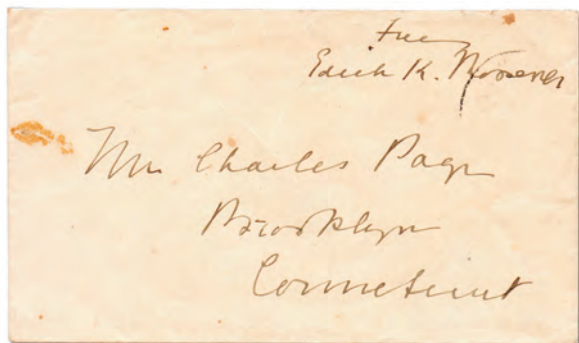 Free
Edith K. Roosevelt
Mr. Charles Page
Brooklyn
Connecticut